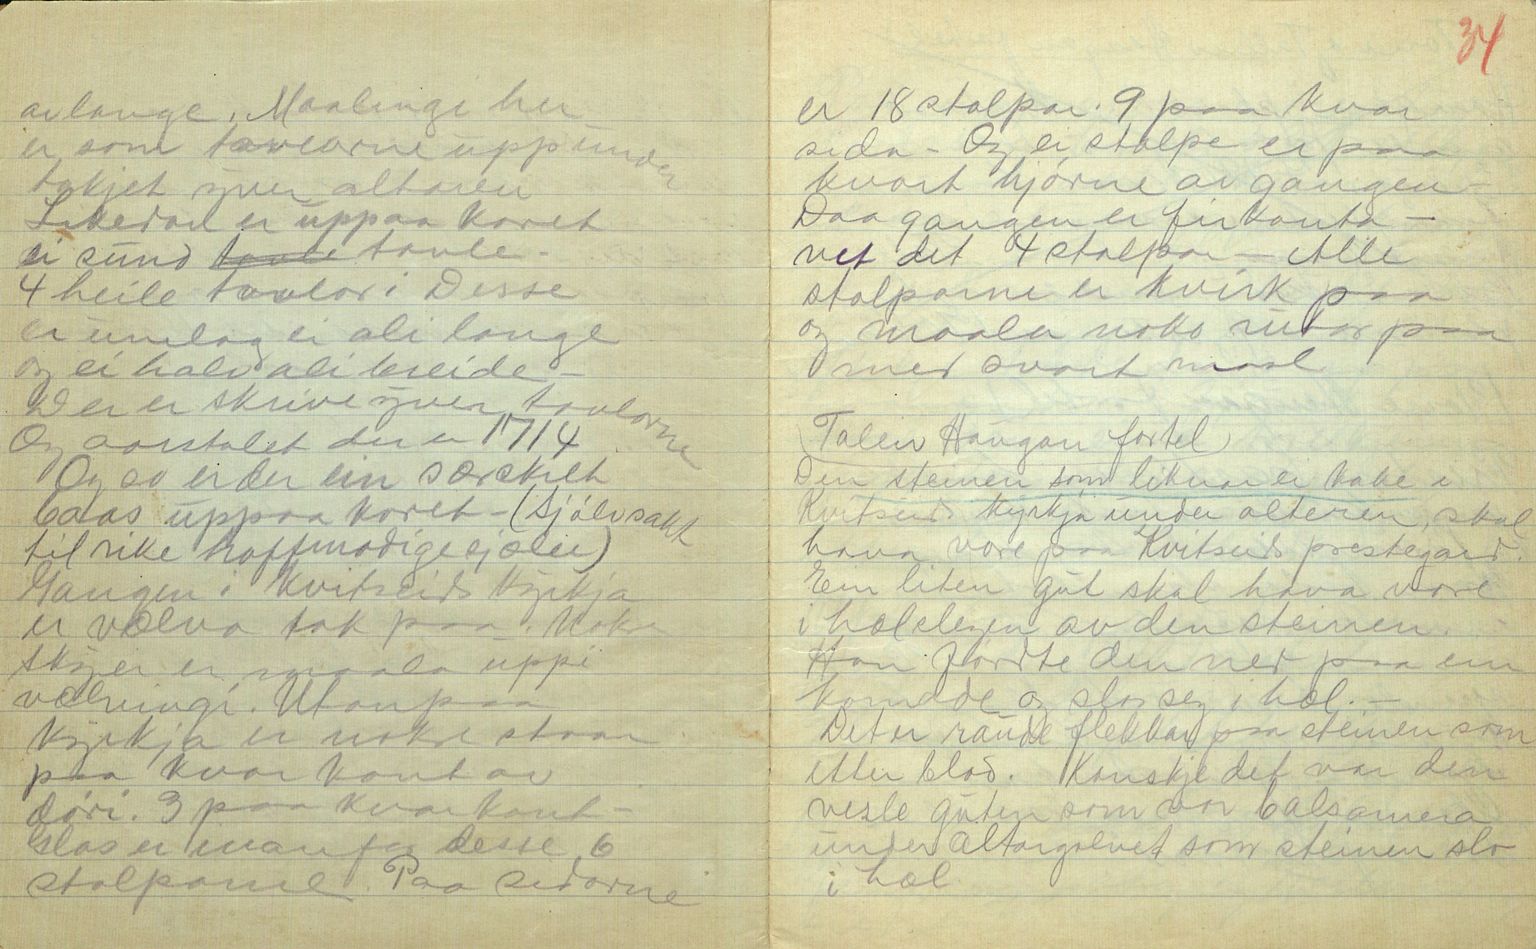 avlange. Maalingi her
er som tavlorne upp under
tekjet yver altaren
Likedan er uppaa koret
ei sund tavle tavle -
4 heile tavlor i Desse
er umlag ei ali lange
og ei halv ali breide -
Der er skrive yver tavlorne
Og aarstalet der er 1714
Og so er der ein særskilt
baas uppaa koret - (Sjølvsakt
til rike hoffmodige sjæler)
Gangen i Kvitseids Kyrkja
er vælva tak paa. Noke
Skyer er maala uppi
vælvingi. Utanpaa
Kyrkja er nokre staar
paa kvar kant av
döri. 3 paa kvar kant -
Glas er inanfor desse 6
stolpane. Paa sidorne
34
er 18 stolpar. 9 paa kvar
sida - Og ei stolpe er paa
kvart hjørne av gangen -
Daa gangen er firkanta -
vet det 4 stolpar - Alle
stolparne er kvisk paa
og maala noko rutor paa
med svart maal
(Talen Haugan fortel)
Den steinen som liknar ei kake i
Kvitseids kyrkja under alteren, skal
hava vore paa Kvitseids prestegard.
Ein liten gut skal hava vore
i hælslegjen av den steinen.
Han förde den ned paa ein
komade og slo seg i hæl. -
Det er raude flekkar paa steinen som
etter blod. Kanskje det var den
vesle guten som var balsamera
under altargolvet som steinen slo
i hæl